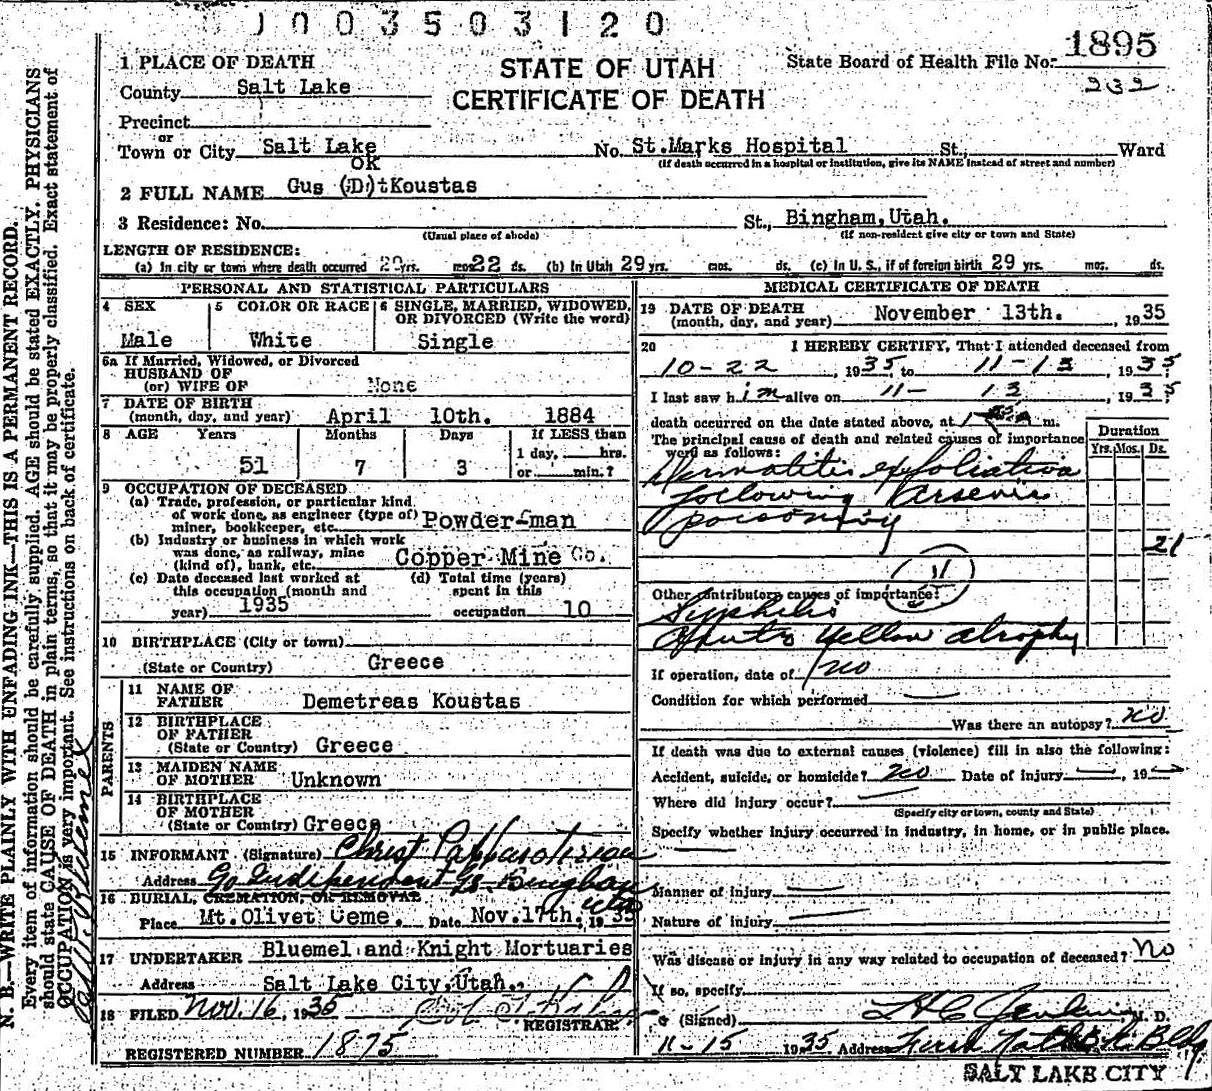 J 0 0 3 5 0 3 1 2 0
STATE OF UTAH
CERTIFICATE OF DEATH
State Board of Health File No. 1895
232
1 PLACE OF DEATH
County Salt Lake
Precinct
or
Town or City Salt Lake No. St.Marks Hospital St., Ward
(If death occurred in a hospital or institution, give its NAME instead of street and number)
OK
2 FULL NAME Gus (D.)tKoustas
3 Residence: No. St., Bingham,Utah.
(Usual place of abode) (If non-resident give city or town and State)
LENGTH OF RESIDENCE:
(a) In city or town where death occurred yrs. mos. 22 ds. (b) In Utah 29 yrs. mos. ds. (c) In U. S., if of foreign birth 29 yrs. mos. ds.
PERSONAL AND STATISTICAL PARTICULARS
4 SEX
Male
5 COLOR OR RACE
White
6 SINGLE, MARRIED, WIDOWED, OR DIVORCED (Write the word)
Single
6a If Married, Widowed, or Divorced
HUSBAND OF
(or) WIFE OF None
7 DATE OF BIRTH
(month, day, and year) April 10th. 1884
8 AGE Years Months Days If LESS than
1 day, hrs.
51 7 3 or min.?
9 OCCUPATION OF DECEASED
(a) Trade, profession, or particular kind
of work done, as engineer (type of)
miner, bookkeeper, etc. Powder-man
(b) Industry or business in which work
was done, as railway, mine
(kind of), bank, etc. Copper Mine Co.
(c) Date deceased last worked at
this occupation (month and
year) 1935
(d) Total time (years)
spent in this
occupation 10
10 BIRTHPLACE (City or town)
(State or Country) Greece
PARENTS
11 NAME OF
FATHER Demetreas Koustas
12 BIRTHPLACE
OF FATHER
(State or Country) Greece
13 MAIDEN NAME
OF MOTHER Unknown
14 BIRTHPLACE
OF MOTHER
(State or Country) Greece
15 INFORMANT (Signature) Christ
Address Go Independent Gs. Bingham
Utah
16 BURIAL, CREMATION, OR REMOVAL
Place Mt.Olivet Ceme. Date Nov.17th. , 1935
17 UNDERTAKER Bluemel and Knight Mortuaries
Address Salt Lake City,Utah.
18 FILED Nov. 16, 1935
REGISTRAR
REGISTERED NUMBER 1875
MEDICAL CERTIFICATE OF DEATH
19 DATE OF DEATH
(month, day, and year) November 13th. , 1935
20 I HEREBY CERTIFY, That I attended deceased from
10-22 , 1935, to 11-13 , 1935
I last saw him alive on 11- 13 , 1935
death occurred on the date stated above, at m.
The principal cause of death and related causes of importance
were as follows:
Duration
Yrs. Mos. Ds.
Dermatitis exfoliativa
following Arsenic
poisoning
21
11
Other contributory causes of importance:
Syphilis
Acute Yellow atrophy
If operation, date of no
Condition for which performed
Was there an autopsy? no
If death was due to external causes (violence) fill in also the following:
Accident, suicide, or homicide? no Date of injury , 19
Where did injury occur?
(Specify city or town, county and State)
Specify whether injury occurred in industry, in home, or in public place.
Manner of injury
Nature of injury
Was disease or injury in any way related to occupation of deceased? No
If so, specify
(Signed) M. D.
11-15 1935 Address Bldg
SALT LAKE CITY
N. B.—WRITE PLAINLY WITH UNFADING INK—THIS IS A PERMANENT RECORD.
Every item of information should be carefully supplied. AGE should be stated EXACTLY. PHYSICIANS
should state CAUSE OF DEATH in plain terms, so that it may be properly classified. Exact statement of
OCCUPATION is very important. See instructions on back of certificate.